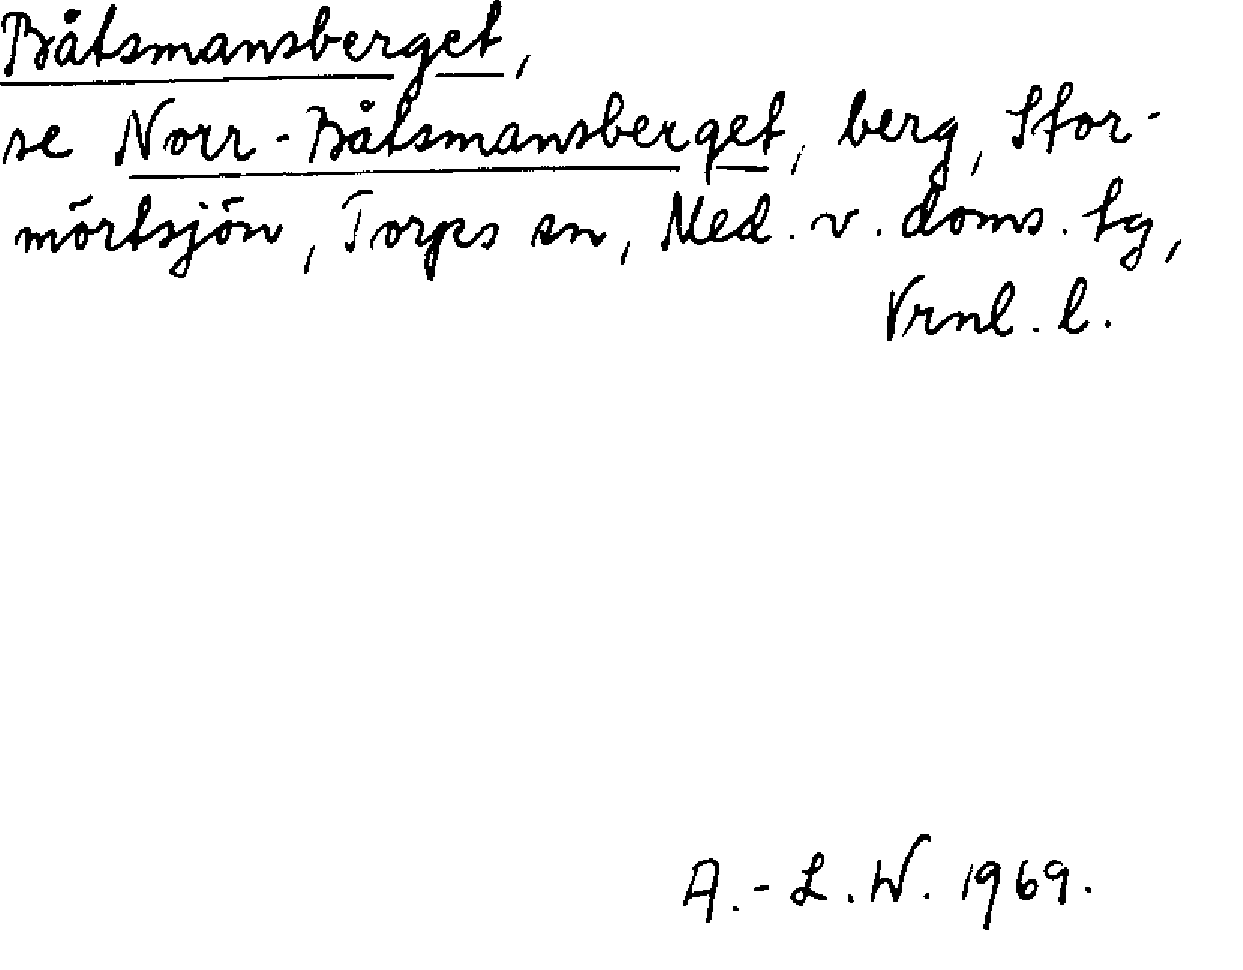 Båtsmansberget,
se Norr-Båtsmansberget, berg, Stor-
mörtsjön, Torps sn, Med. v. doms. tg,
Vrnl. l.
A.-L. W. 1969.